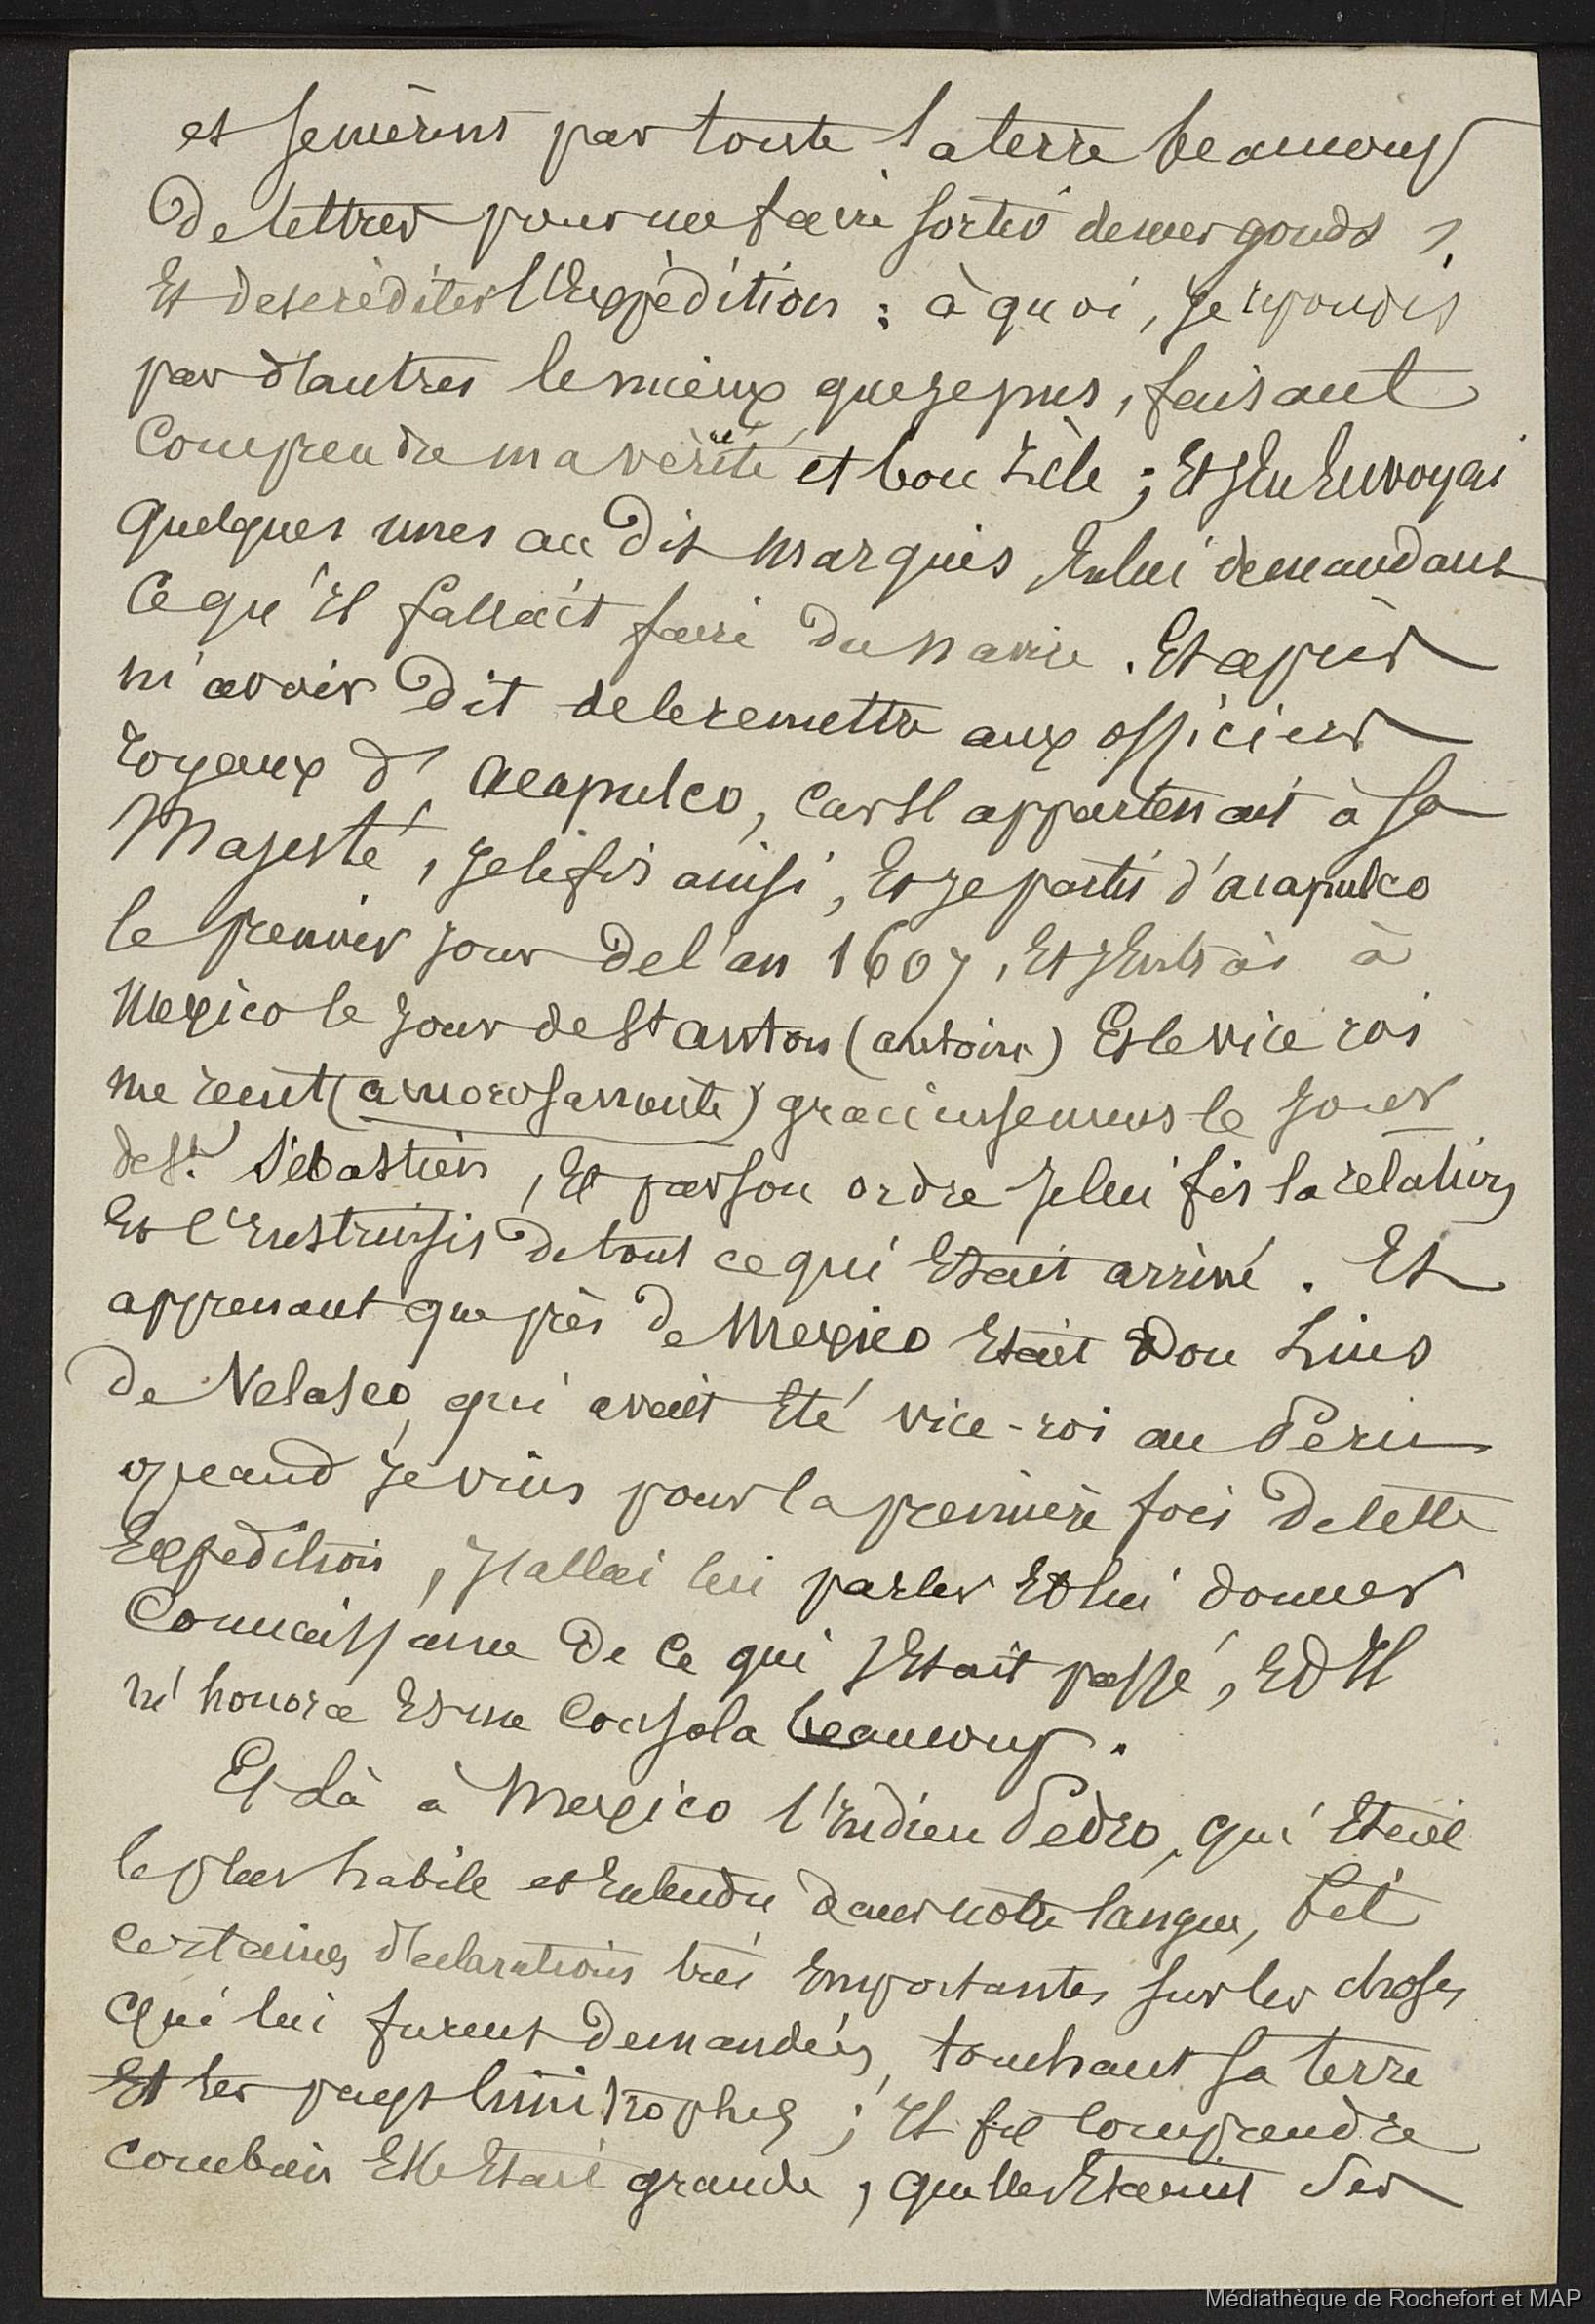 et semèrent par toute la terre beaucoup
de lettres pour me faire sortir de mes gonds,
Et descréditer l'Expédition ; à quoi, je repondis
par d'autres le mieux que je pus, faisant
comprendre ma vérité et bon zèle ; Et j'En Envoyai
quelques unes au dit marquis, En lui demandant
ce qu'Il fallait faire du navire. Et après
m'avoir dit de le remettre aux officiers
royaux d'Acapulco, car Il appartenait à Sa
Majesté, je le fis ainsi, Et je partis d'acapulco
le premier jour de l'an 1607, Et j'Entrai à
Mexico le jour de St Anton (antoine) Et le vice roi
me recut (amorosamente) gracieusement le jour
de St. Sébastien, Et par son ordre je lui fis la relation
Et l'Instruisis de tout ce qui Etait arrivé. Et
apprenant que près de Mexico Etait Don Luis
de Velasco, qui avait Eté vice-roi au Pérou
quand je vins pour la première fois de cette
Expedition, j'allai lui parler Et lui donner
connaissance de ce qui s'Etait passé, Et Il
m'honora Et me consola beaucoup.
Et là à Mexico l'Indien Pedro, qui Etait
le plus habile et Entendu dans notre langue, fit
certaines déclarations très Importantes sur les choses
qui lui furent demandées, touchant sa terre
Et les pays limitrophes ; Il fit comprendre
combien Elle Etait grande, quelles Etaient Ses
Médiathèque de Rochefort et MAP